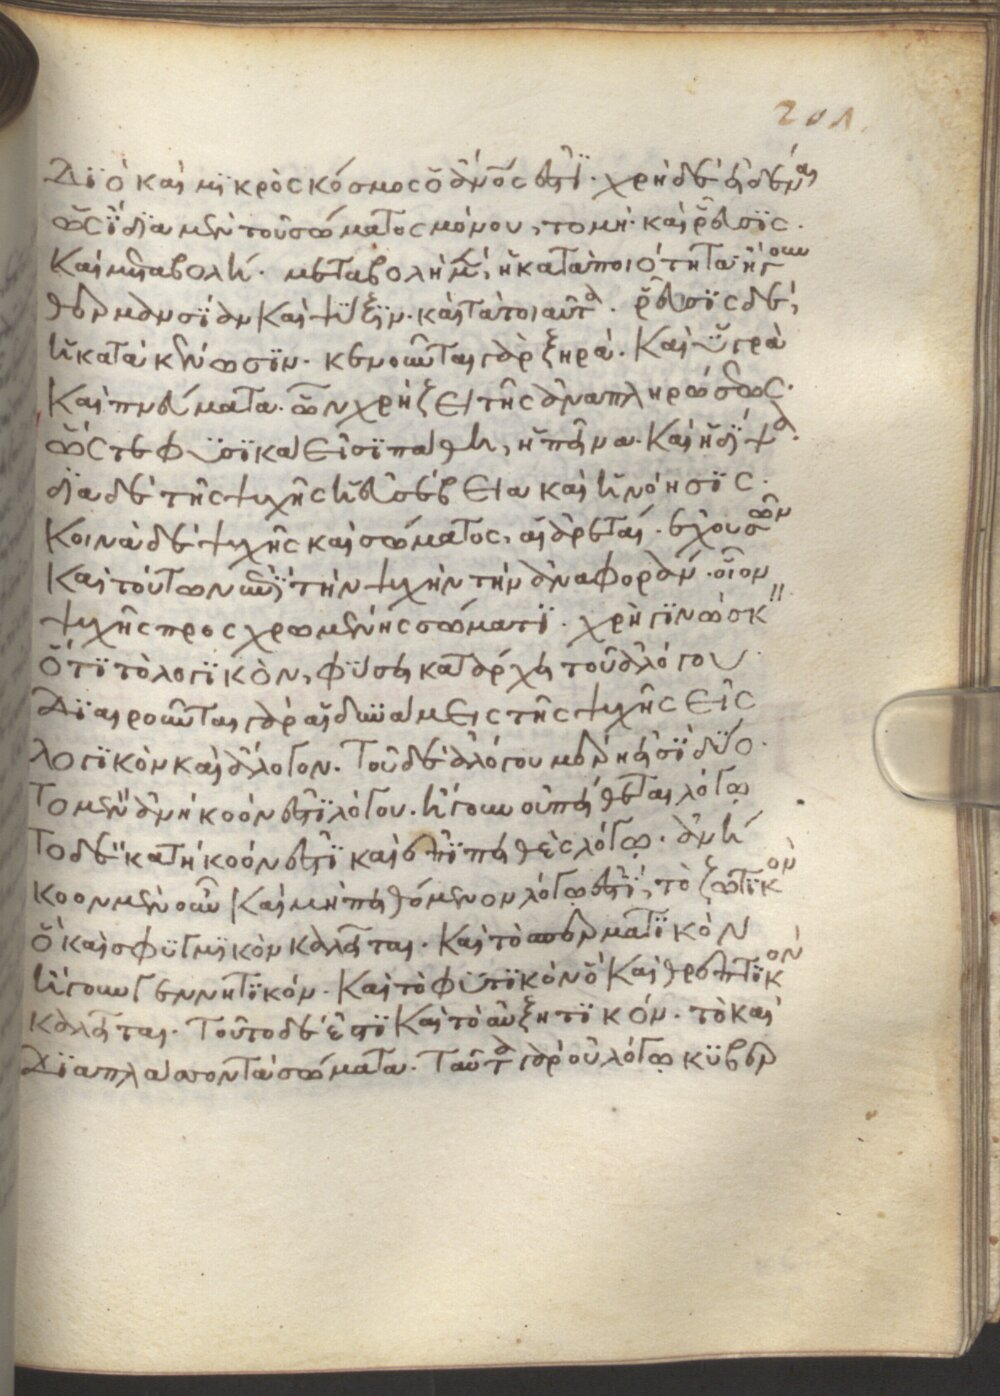 Διὸ καὶ μϊκρὸς κόσμος ὁ ἄνος ἐστΐ· χρὴ δὲ εἰδέναι
ὡς ἴδϊα μὲν τοῦ σώματος μόνου, τομὴ· καὶ ῥεῦσϊς·
Καὶ μεταβολή· μεταβολὴ μὲν, ἡ κατὰ ποιότητα ἤγουν
θέρμανσϊν Καὶ ψύξϊν· καὶ τὰ τοιαῦτα· ῥεῦσϊς δὲ,
ἡ κατὰ κένωσϊν· κενοῦται γὰρ ξηρὰ· Καὶ ὑγρὰ
Καὶ πνεύματα· ὧν χρήζει τῆς ἀναπληρώσεως·
ὥς τε φϋσϊκὰ εἰσϊ πάθη, ἡ πεῖνα· Καὶ ἡ δίψα·
δϊα δὲ τῆς ψυχῆς ἡ εὐσέβεια καὶ ἡ νόησϊς·
Κοινὰ δὲ ψυχῆς καὶ σώματος, αἱ ἀρεταί· ἐχουσῶν
Καὶ τούτων ἐπῒ τὴν ψυχὴν τὴν ἀναφορὰν· οἷον
ψυχῆς προς χρωμένης σώματϊ· χρὴ γϊνώσκειν
ὅτϊ τὸ λογϊκὸν, φύσει κατάρχει τοῦ ἀλόγου·
Διαιροῦνται γὰρ αἱ δυνάμεις τῆς ψυχῆς εἰς
λογϊκὸν καὶ ἄλογον. Τοῦ δὲ ἀλόγου μέρη εἰσῒ δύο·
Το μὲν ἀνήκοόν ἐστϊ λόγου· ἤγουν οὐ πείθεται λόγω
Το δὲ κατήκοόν ἐστϊ καὶ ἐπϊπειθὲς λόγω· ἀνή
κοον μὲν οὖν Καὶ μὴ πειθόμενον λόγω ἐστΐ, τὸ ζωτϊκὸν
ὃ καὶ σφϋγμϊκὸν καλεῖται· Καὶ τὸ σπερματϊκὸν
ἤγουν γεννητϊκόν· Καὶ τὸ φϋτϊκὸν ὃ Καὶ θρεπτϊκὸν
καλεῖται· Τούτο δὲ ἐστϊ Καὶ τὸ αὐξητϊκόν· τὸ καὶ
Διαπλάσσον τὰ σώματα· Ταῦτα γὰρ οὐ λόγω κϋβερ